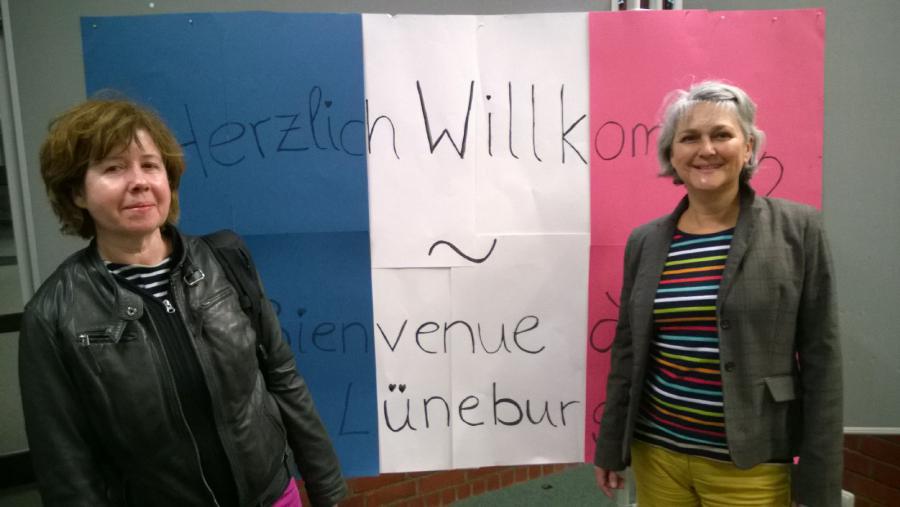 Herzlich Willkom
~
Bienvenue à
Lüneburg